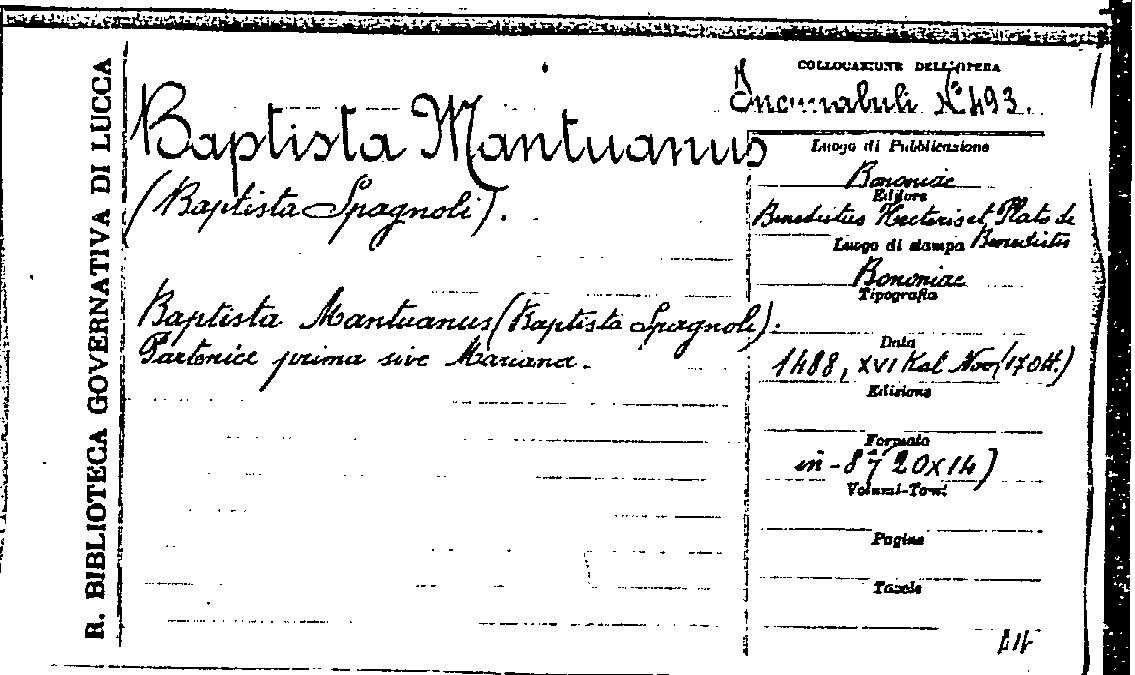 R. BIBLIOTECA GOVERNATIVA DI LUCCA
Baptista Mantuanus
(Baptista Spagnoli).
Baptista Mantuanus (Baptista Spagnoli).
Partenice prima sive Mariana.
COLLOCAZIONE DELL'OPERA
Incunabuli N.º 493.
Luogo di Pubblicazione
Bononiae
Editore
Benedictus Hectoris et Plato de
Benedictis
Luogo di stampa
Bononiae
Tipografia
Data
1488, XVI Kal Nov (17 Ott.)
Edizione
Formato
in-8º (20x14)
Volumi-Tomi
Pagine
Tavole